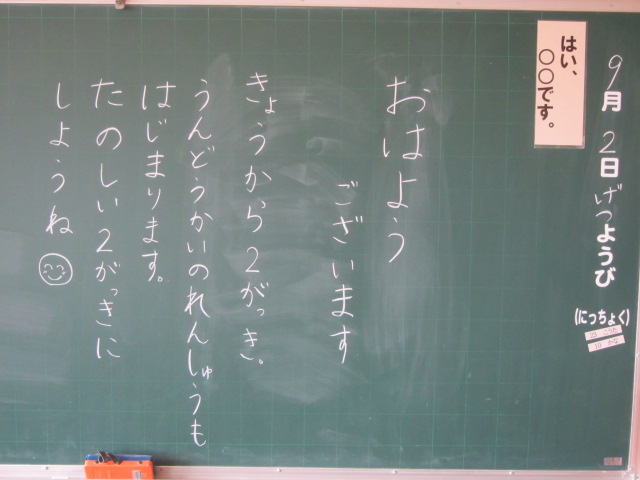 9月2日げつようび
(にっちょく)
はい、
○○です。
おはよう
ございます
きょうから2がっき。
うんどうかいのれんしゅうも
はじまります。
たのしい2がっきに
しようね